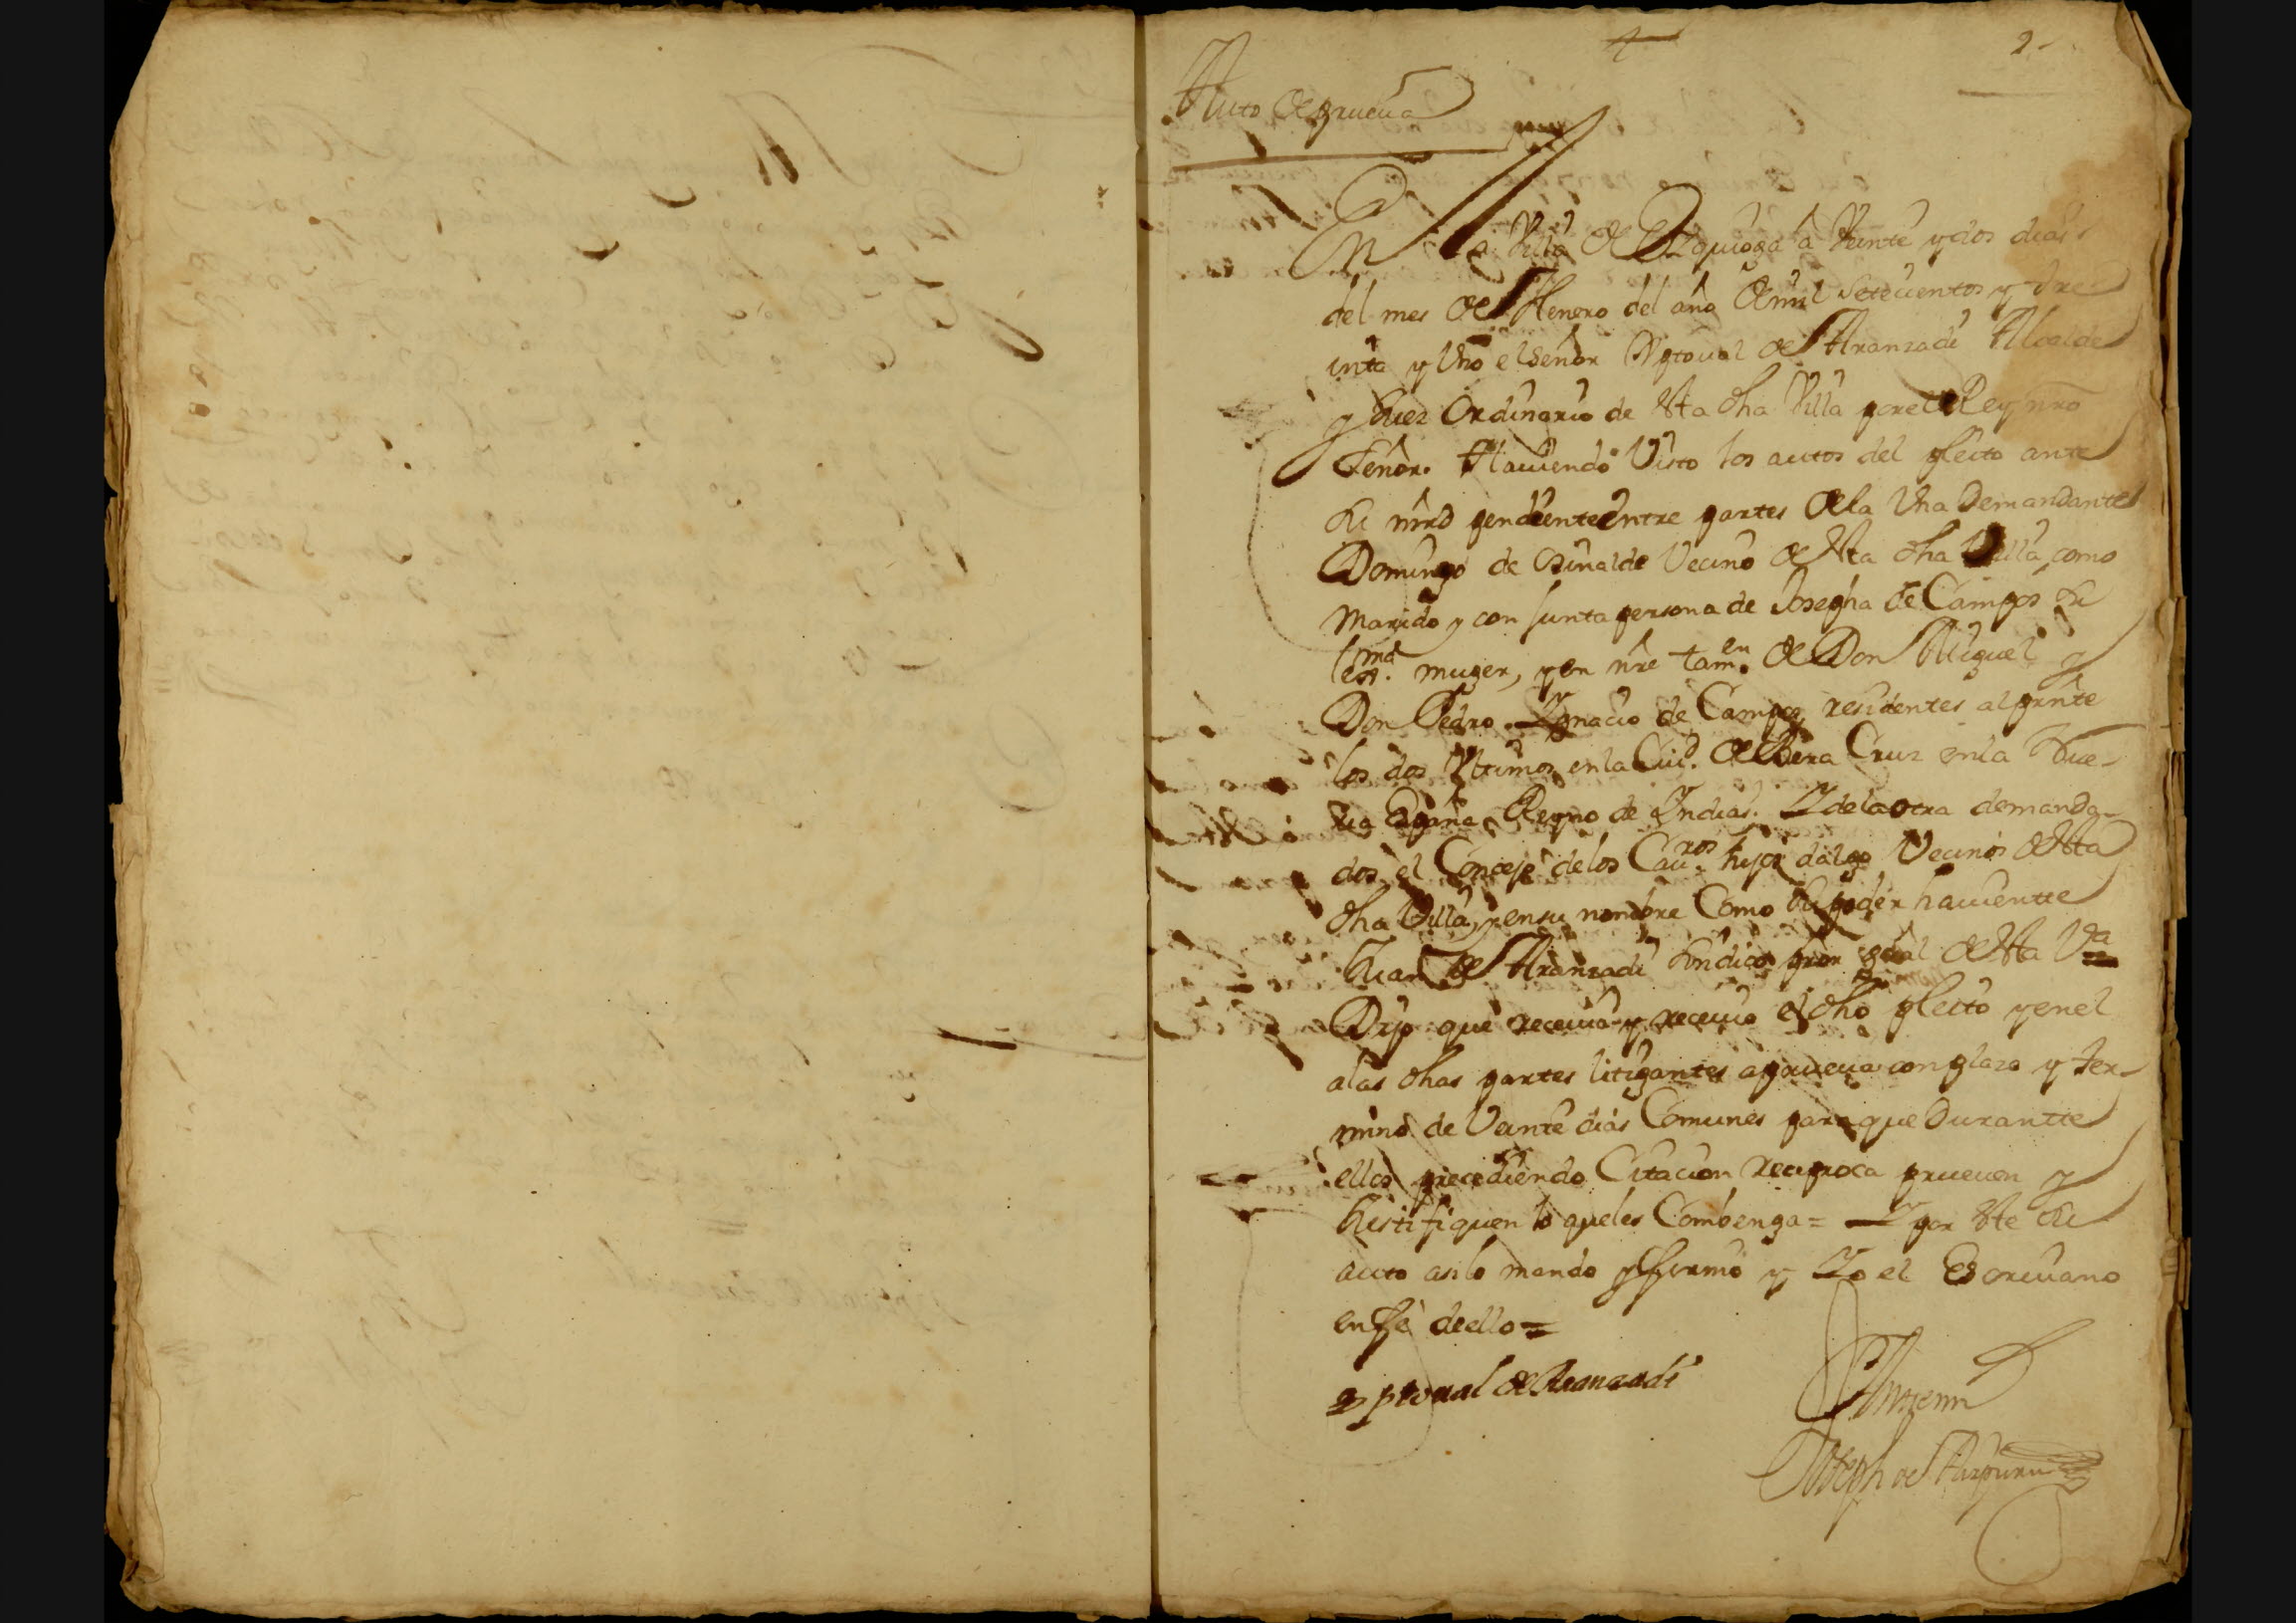 2
Auto de prueua
En la Villa de Ezquioga a Veinte y dos dias
del mes de Henero del año de mil Setecientos y tre
inta y Uno el señor Xptoual de Aranzadi Alcalde
y Juez Ordinario de esta dha Villa por el Rey nro
Señor. Hauiendo Visto los autos del pleito ante
su mrd pendiente entre partes de la Una Demandante
Domingo de Vecino de esta dha Villa, como
Marido y conjunta persona de Josepha de Campos su
lexma. muger, y en nre tamen. de Don Miguel y
Don Pedro Ygnacio de Campos, residentes al prnte
los dos Vltimos en la Ciud. de Bera Cruz en la Nue-
ua España Reyno de Indias. Y de la otra demanda-
dos, el Concejo de los Cauros. hijos dalgo Vecinos de esta
dha Villa, y en su nombre Como su poder hauiente
Juan de Aranzadi Sindico pror gral de esta Va
Dijo que receuia y receuio el dho pleito y en el
a las dhas partes litigantes a prueua con plazo y ter-
mino de Veinte dias Comunes para que Durante
ellos precediendo Citacion reciproca prueuen y
Justifiquen lo que les Combenga = Y por este su
auto asi lo mando y firmo y Yo el Escriuano
en fe de ello =
Xptoual de Aranzadi
Ante mi
Joseph de Aizpuru